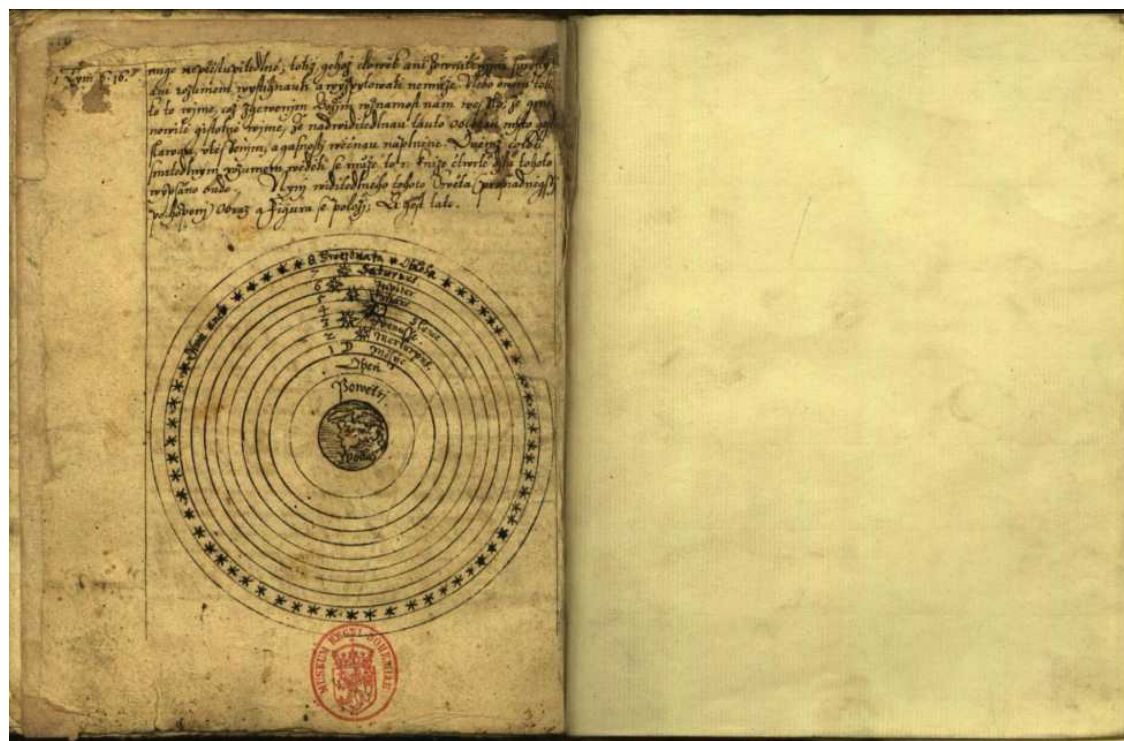 1 Tym 6: 16.
nepřistupitedlné; totiž, gehož člowěk ani
ani rozumem wystihnauti a wyzpytowati nemůže. Nebo
to to wjme, což zgewenjm Božjm w známost nám že gme-
nowitě gistotně wjme, že nadwiditedlnau tauto oblohau mjsto
slawau, utěssenjm, a gasnostj wěčnau naplněné. O němž
smrtedlným rozumem wěděti se může to w knize čtwrté djlu tohoto
wypsáno bude. Nynj widitedlného tohoto Swěta (pro snadnegssj
pochopenj) Obraz a Figura se položj, A gest tato.
8
7 Saturnus
6 Jupiter
5
4 Slunce
3 Venus
2 Mercuryus
1 Měsýc
Oheň
Powětřj
Woda
MUSEUM REGNI BOHEMIAE